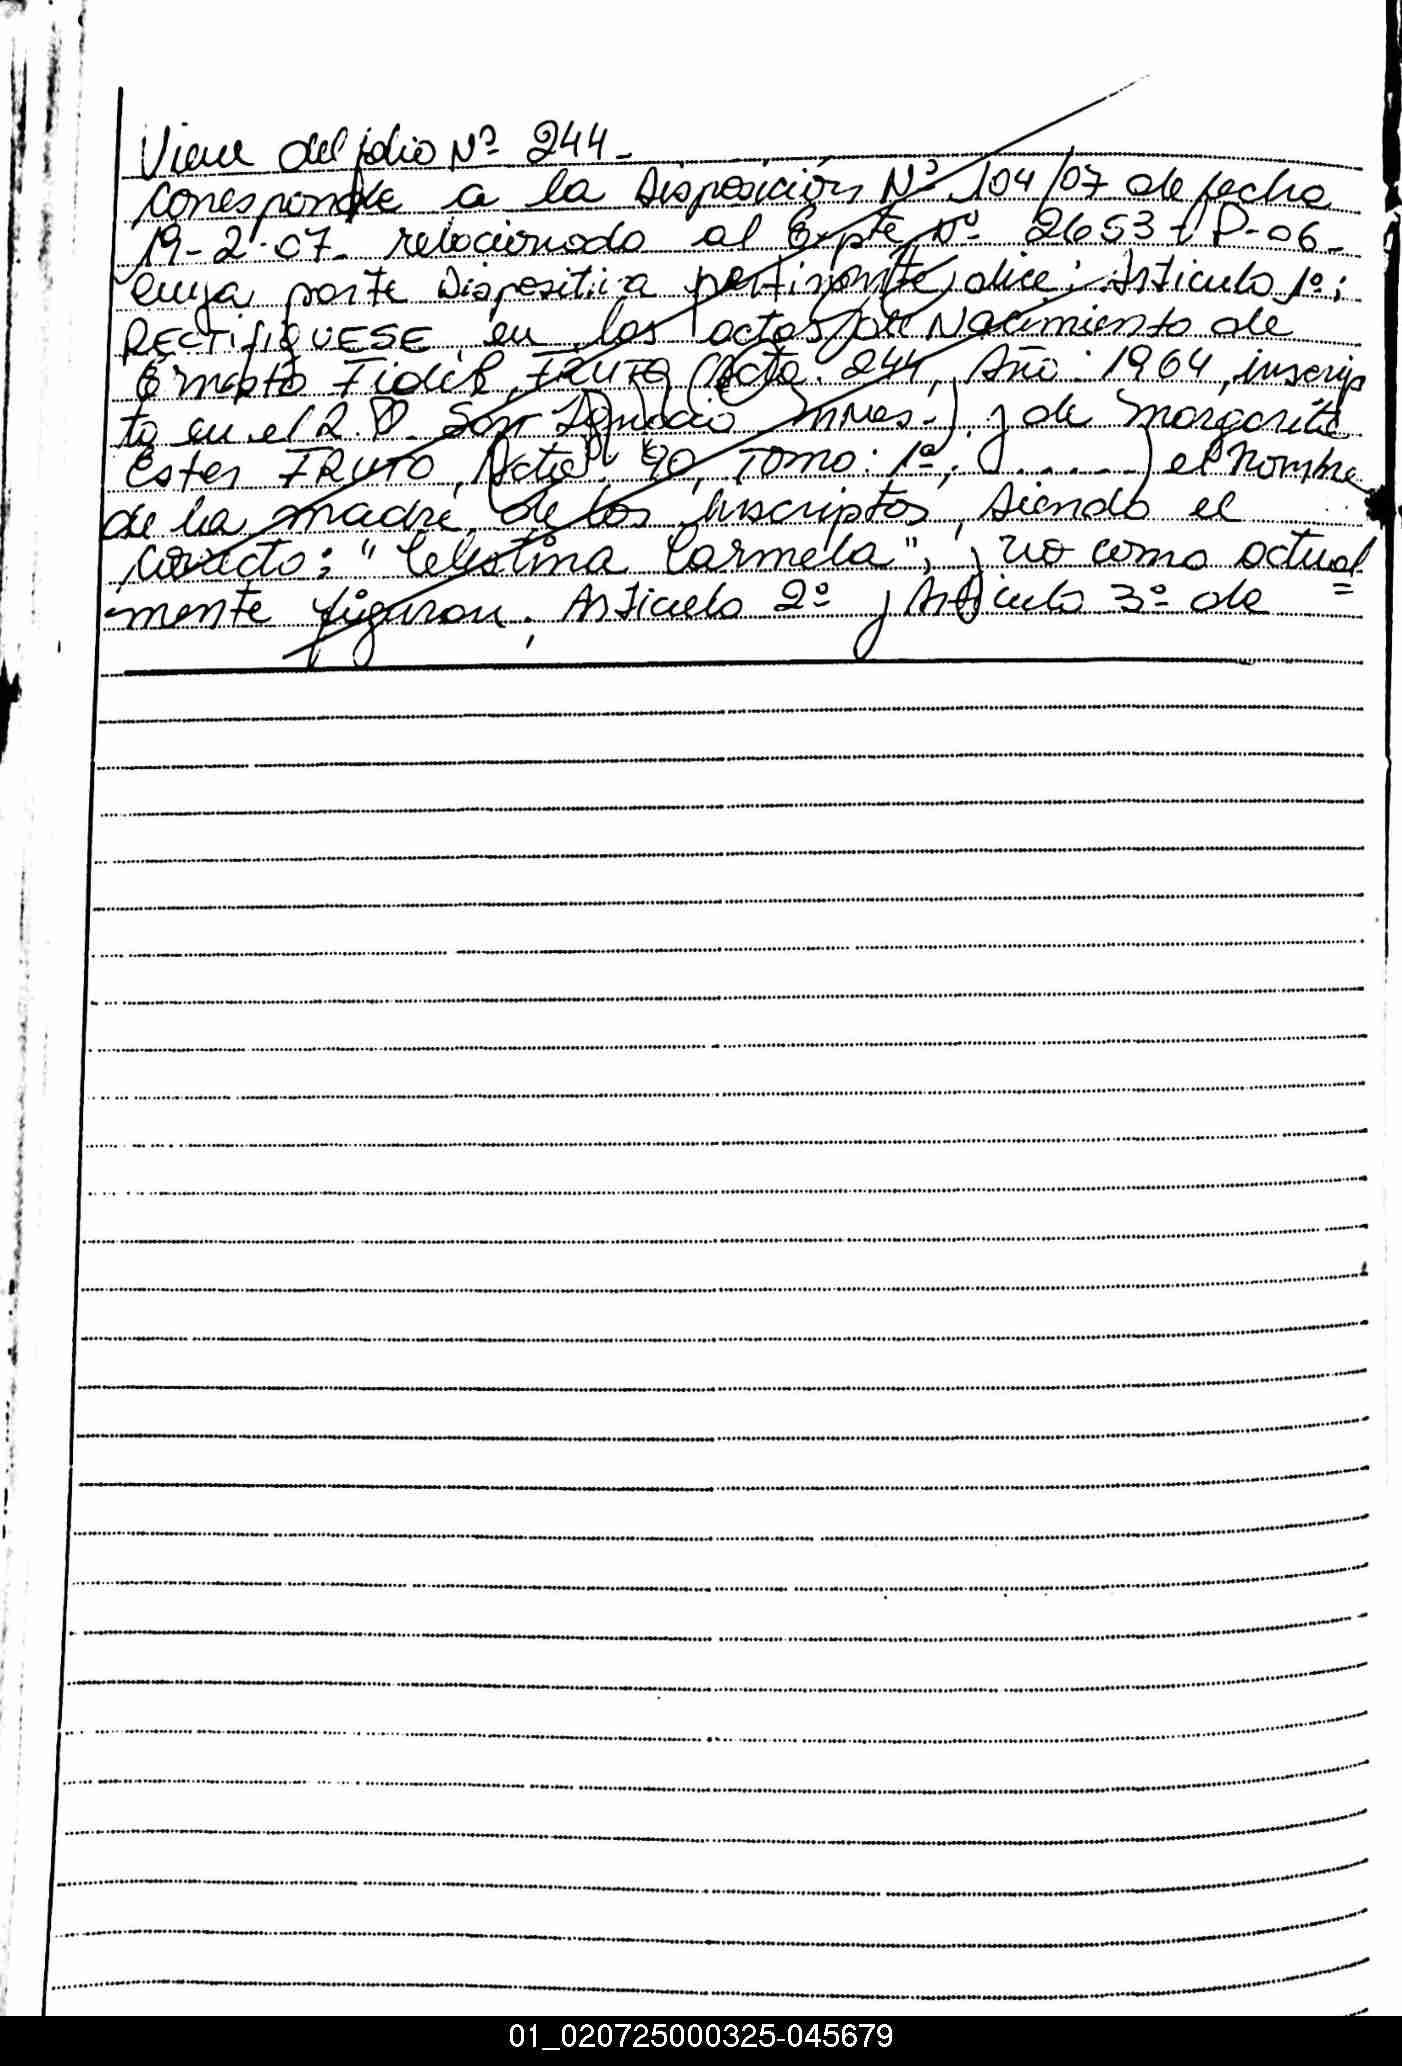 Viene del folio Nº 244-
Corresponde a la Disposición Nº 104/07 de fecha
19-2-07- relacionado al Expte Nº 2653-P-06-
cuya parte Dispositiva pertinente dice: Artículo 1º:
RECTIFIQUESE en las actas de Nacimiento de
Ernesto Fidel FRUTO (Acta: 244, Año: 1964, inscrip
to en el R.P. San Ignacio Mnes.) y de Margarita
Ester FRUTO, (Acta: 90, Tomo: 1º, ......) el nombre
de la madre de los inscriptos, siendo el
correcto: "Celestina Carmela", y no como actual
mente figuran; Artículo 2º y Artículo 3º de =
01_020725000325-045679